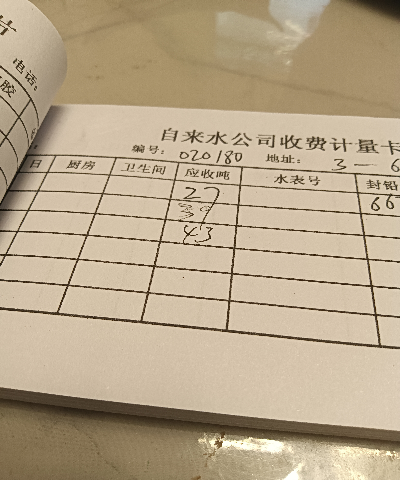 片
电话:
胶
自来水公司收费计量卡
编号: 020180 地址: 3-6
日 厨房 卫生间 应收吨 水表号 封铅
27 66
39
43